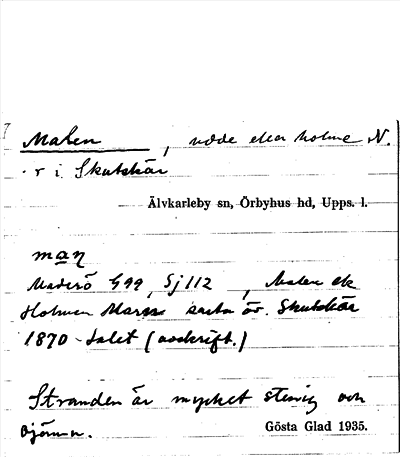 Malen, udde eller holme N.
r i Skutskär
Älvkarleby sn, Örbyhus hd, Upps. l.
maη
G 99, Sj 112, Malen ek
Holmen karta öv. Skutskär
1870-talet (avskrift.)
Stranden är mycket stenig och
ojämn.
Gösta Glad 1935.